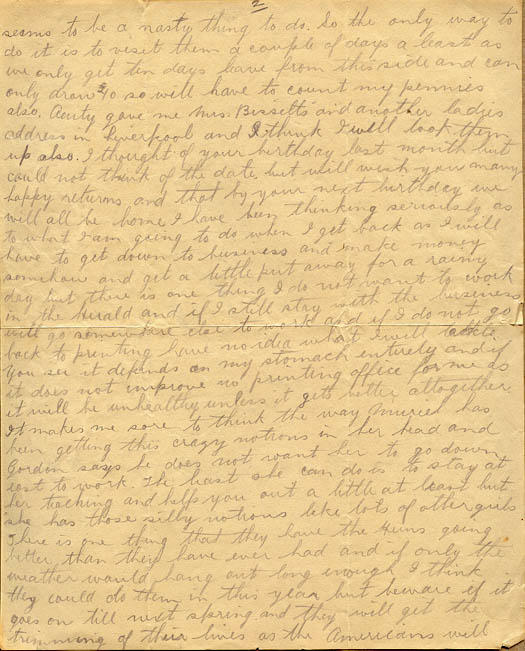 2
seems to be a nasty thing to do. So the only way to
do it is to visit them a couple of days a least as
we only get ten days leave from this side and can
only draw $40 so will have to count my pennies
also. Aunty gave me Mrs. Bissetts and another ladies
address in Liverpool and I think I will look them
up also. I thought of your birthday last month but
could not think of the date but will wish you many
happy returns and that by your next birthday we
will all be home I have been thinking seriously as
to what I am going to do when I get back as I will
have to get down to business and make money
somehow and get a little put away for a rainy
day but there is one thing I do not want to work
in the Herald and if I still stay with the business
will go somewhere else to work and if I do not go
back to printing have no idea what I will
You see it depends on my stomach entirely and if
it does not improve no printing office for me as
it will be unhealthy unless it gets better altogether
It makes me sore to think the way Muriel has
been getting this crazy notions in her head and
Gordon says he does not want her to go down
east to work. The least she can do is to stay at
her teaching and help you out a little at least but
she has those silly notions like lots of other girls
There is one thing that they have the Huns going
better than they have ever had and if only the
weather would hang out long enough I think
they could do them in this year but beware if it
goes on till next spring and they will get the
trimming of their lives as the Americans will